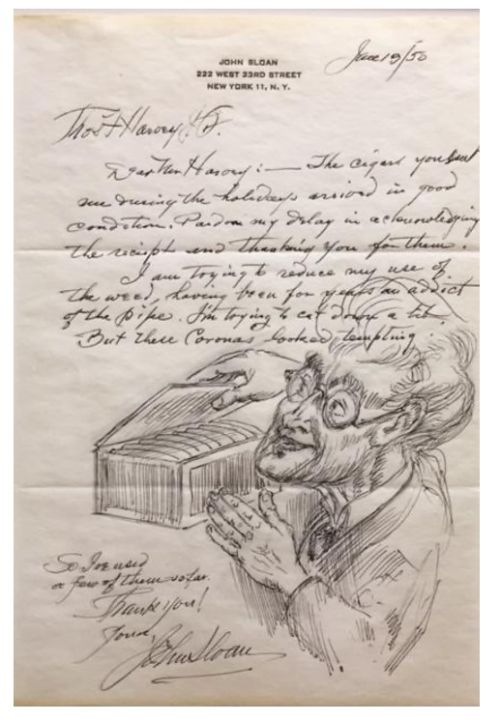 JOHN SLOAN
222 WEST 23RD STREET
NEW YORK 11, N. Y.
Jan 19/50
Thos F Harvey
Dear Mr Harvey: — The cigars you sent
me during the holidays arrived in good
condition. Pardon my delay in acknowledging
the receipt and thanking you for them.
I am trying to reduce my use of
the weed, having been for years an addict
of the pipe. I'm trying to cut down a bit.
But these Coronas looked tempting
So I've used
a few of them so far.
Thank you!
Yours,
John Sloan